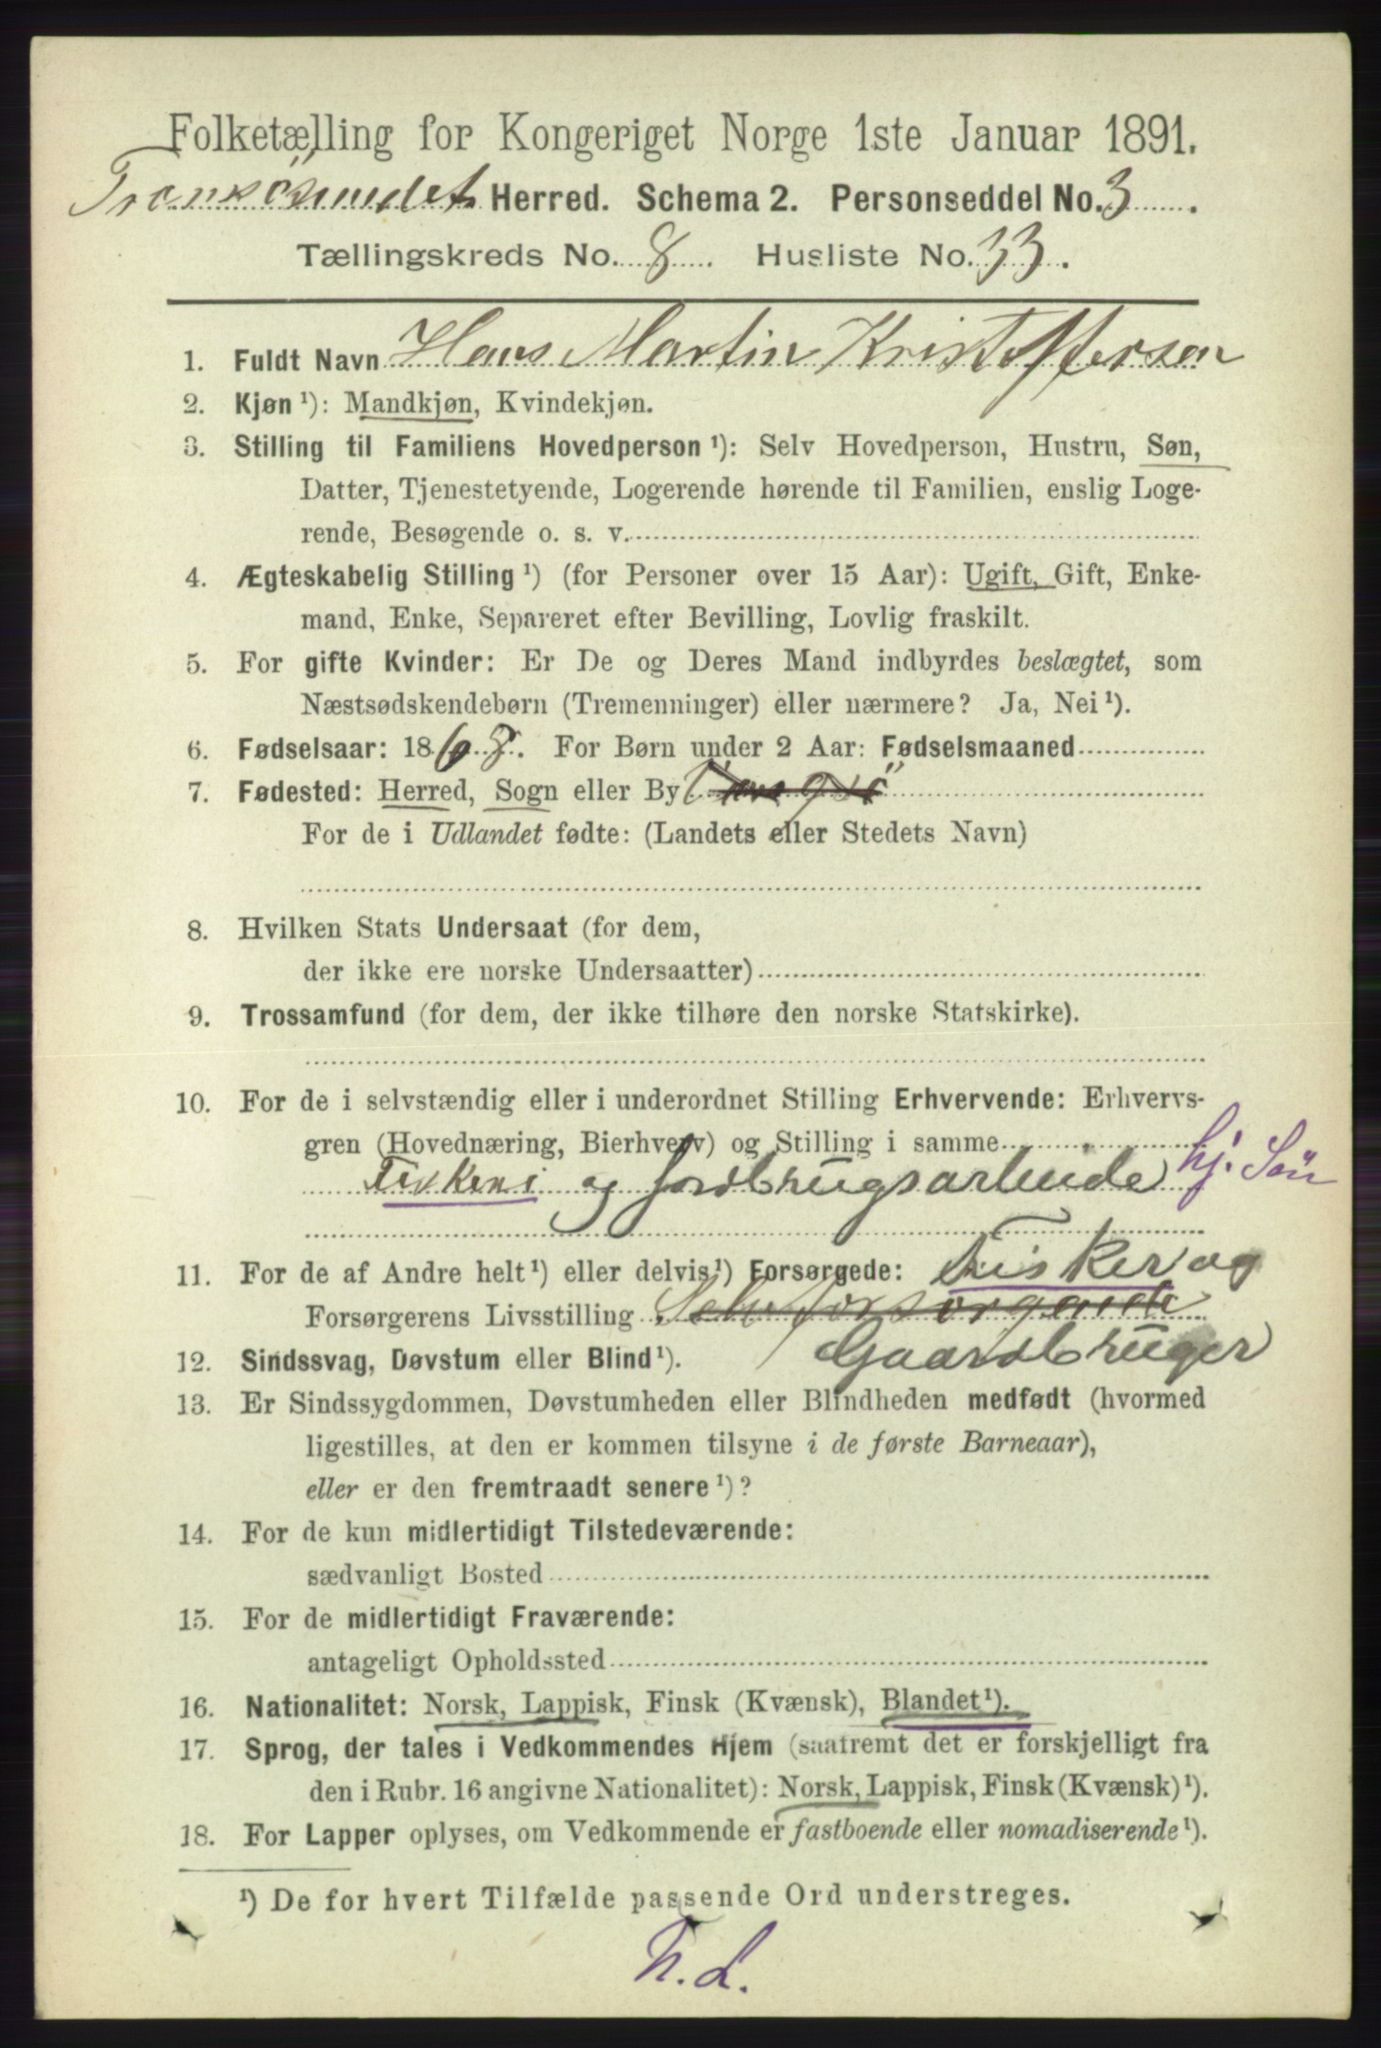 Folketælling for Kongeriget Norge 1ste Januar 1891.
Tromsøsundet Herred. Schema 2. Personseddel No. 3.
Tællingskreds No. 8. Husliste No. 33.
1. Fuldt Navn Hans Martin Kristoffersen
2. Kjøn ¹): Mandkjøn, Kvindekjøn.
3. Stilling til Familiens Hovedperson ¹): Selv Hovedperson, Hustru, Søn,
Datter, Tjenestetyende, Logerende hørende til Familien, enslig Loge-
rende, Besøgende o. s. v.
4. Ægteskabelig Stilling ¹) (for Personer over 15 Aar): Ugift, Gift, Enke-
mand, Enke, Separeret efter Bevilling, Lovlig fraskilt.
5. For gifte Kvinder: Er De og Deres Mand indbyrdes beslægtet, som
Næstsødskendebørn (Tremenninger) eller nærmere? Ja, Nei ¹).
6. Fødselsaar: 186 . For Børn under 2 Aar: Fødselsmaaned
7. Fødested: Herred, Sogn eller By
For de i Udlandet fødte: (Landets eller Stedets Navn)
8. Hvilken Stats Undersaat (for dem,
der ikke ere norske Undersaatter)
9. Trossamfund (for dem, der ikke tilhøre den norske Statskirke).
10. For de i selvstændig eller i underordnet Stilling Erhvervende: Erhvervs-
gren (Hovednæring, Bierhverv) og Stilling i samme
Fiskeri og jordbrugsarbeide hj. Søn
11. For de af Andre helt ¹) eller delvis ¹) Forsørgede: Fisker og
Forsørgerens Livsstilling Selvforsørgende
12. Sindssvag, Døvstum eller Blind ¹). Gaardbruger
13. Er Sindssygdommen, Døvstumheden eller Blindheden medfødt (hvormed
ligestilles, at den er kommen tilsyne i de første Barneaar),
eller er den fremtraadt senere ¹)?
14. For de kun midlertidigt Tilstedeværende:
sædvanligt Bosted
15. For de midlertidigt Fraværende:
antageligt Opholdssted
16. Nationalitet: Norsk, Lappisk, Finsk (Kvænsk), Blandet ¹).
17. Sprog, der tales i Vedkommendes Hjem (saafremt det er forskjelligt fra
den i Rubr. 16 angivne Nationalitet): Norsk, Lappisk, Finsk (Kvænsk) ¹).
18. For Lapper oplyses, om Vedkommende er fastboende eller nomadiserende ¹).
¹) De for hvert Tilfælde passende Ord understreges.
N. L.